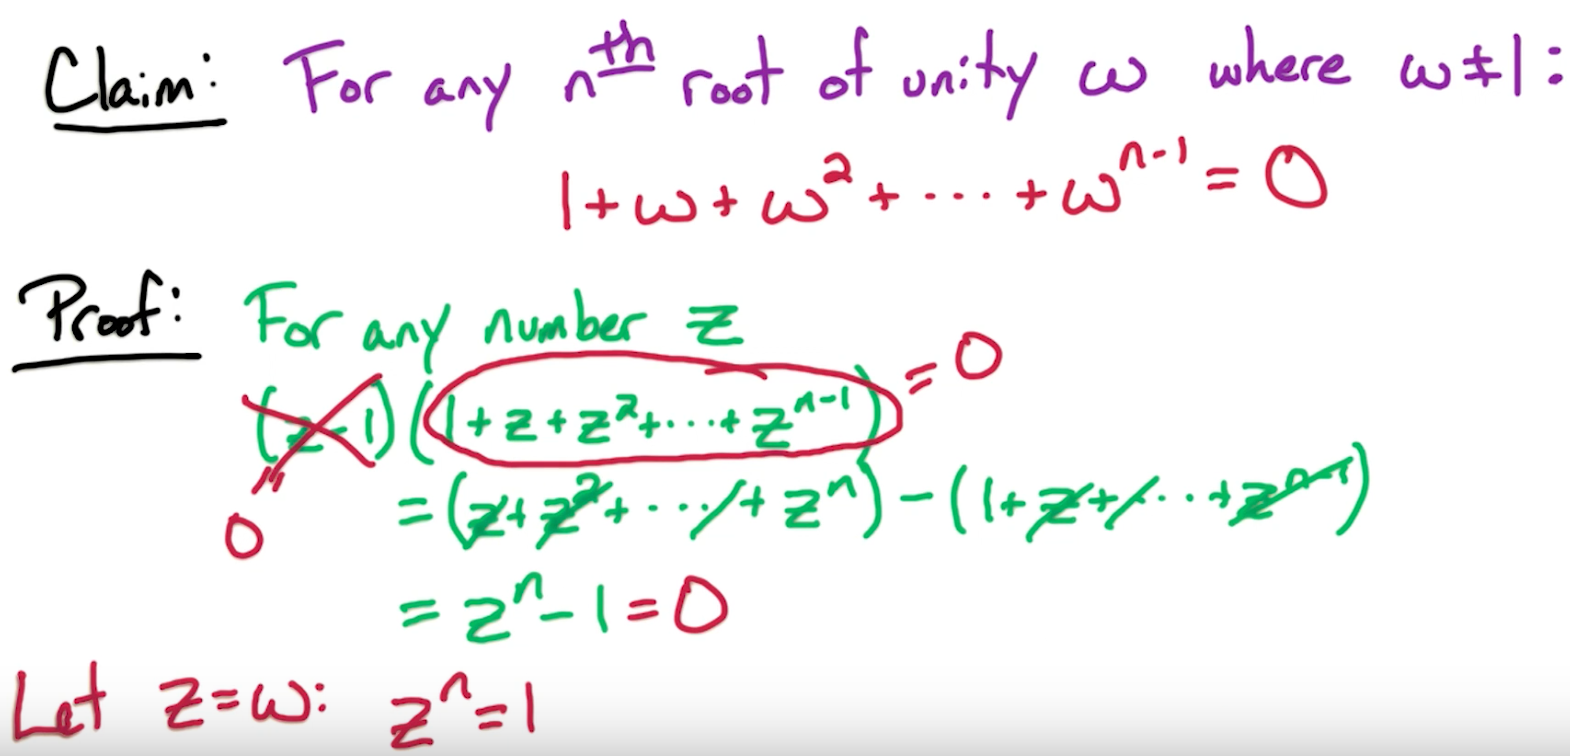 Claim: For any nth root of unity ω where ω≠1:
1+ω+ω²+···+ωⁿ⁻¹=0
Proof: For any number z
(z-1)(1+z+z²+···+zⁿ⁻¹) =0
"
0
=(z+z²+···+zⁿ)-(1+z+···+zⁿ⁻¹)
=zⁿ-1=0
Let z=ω: zⁿ=1